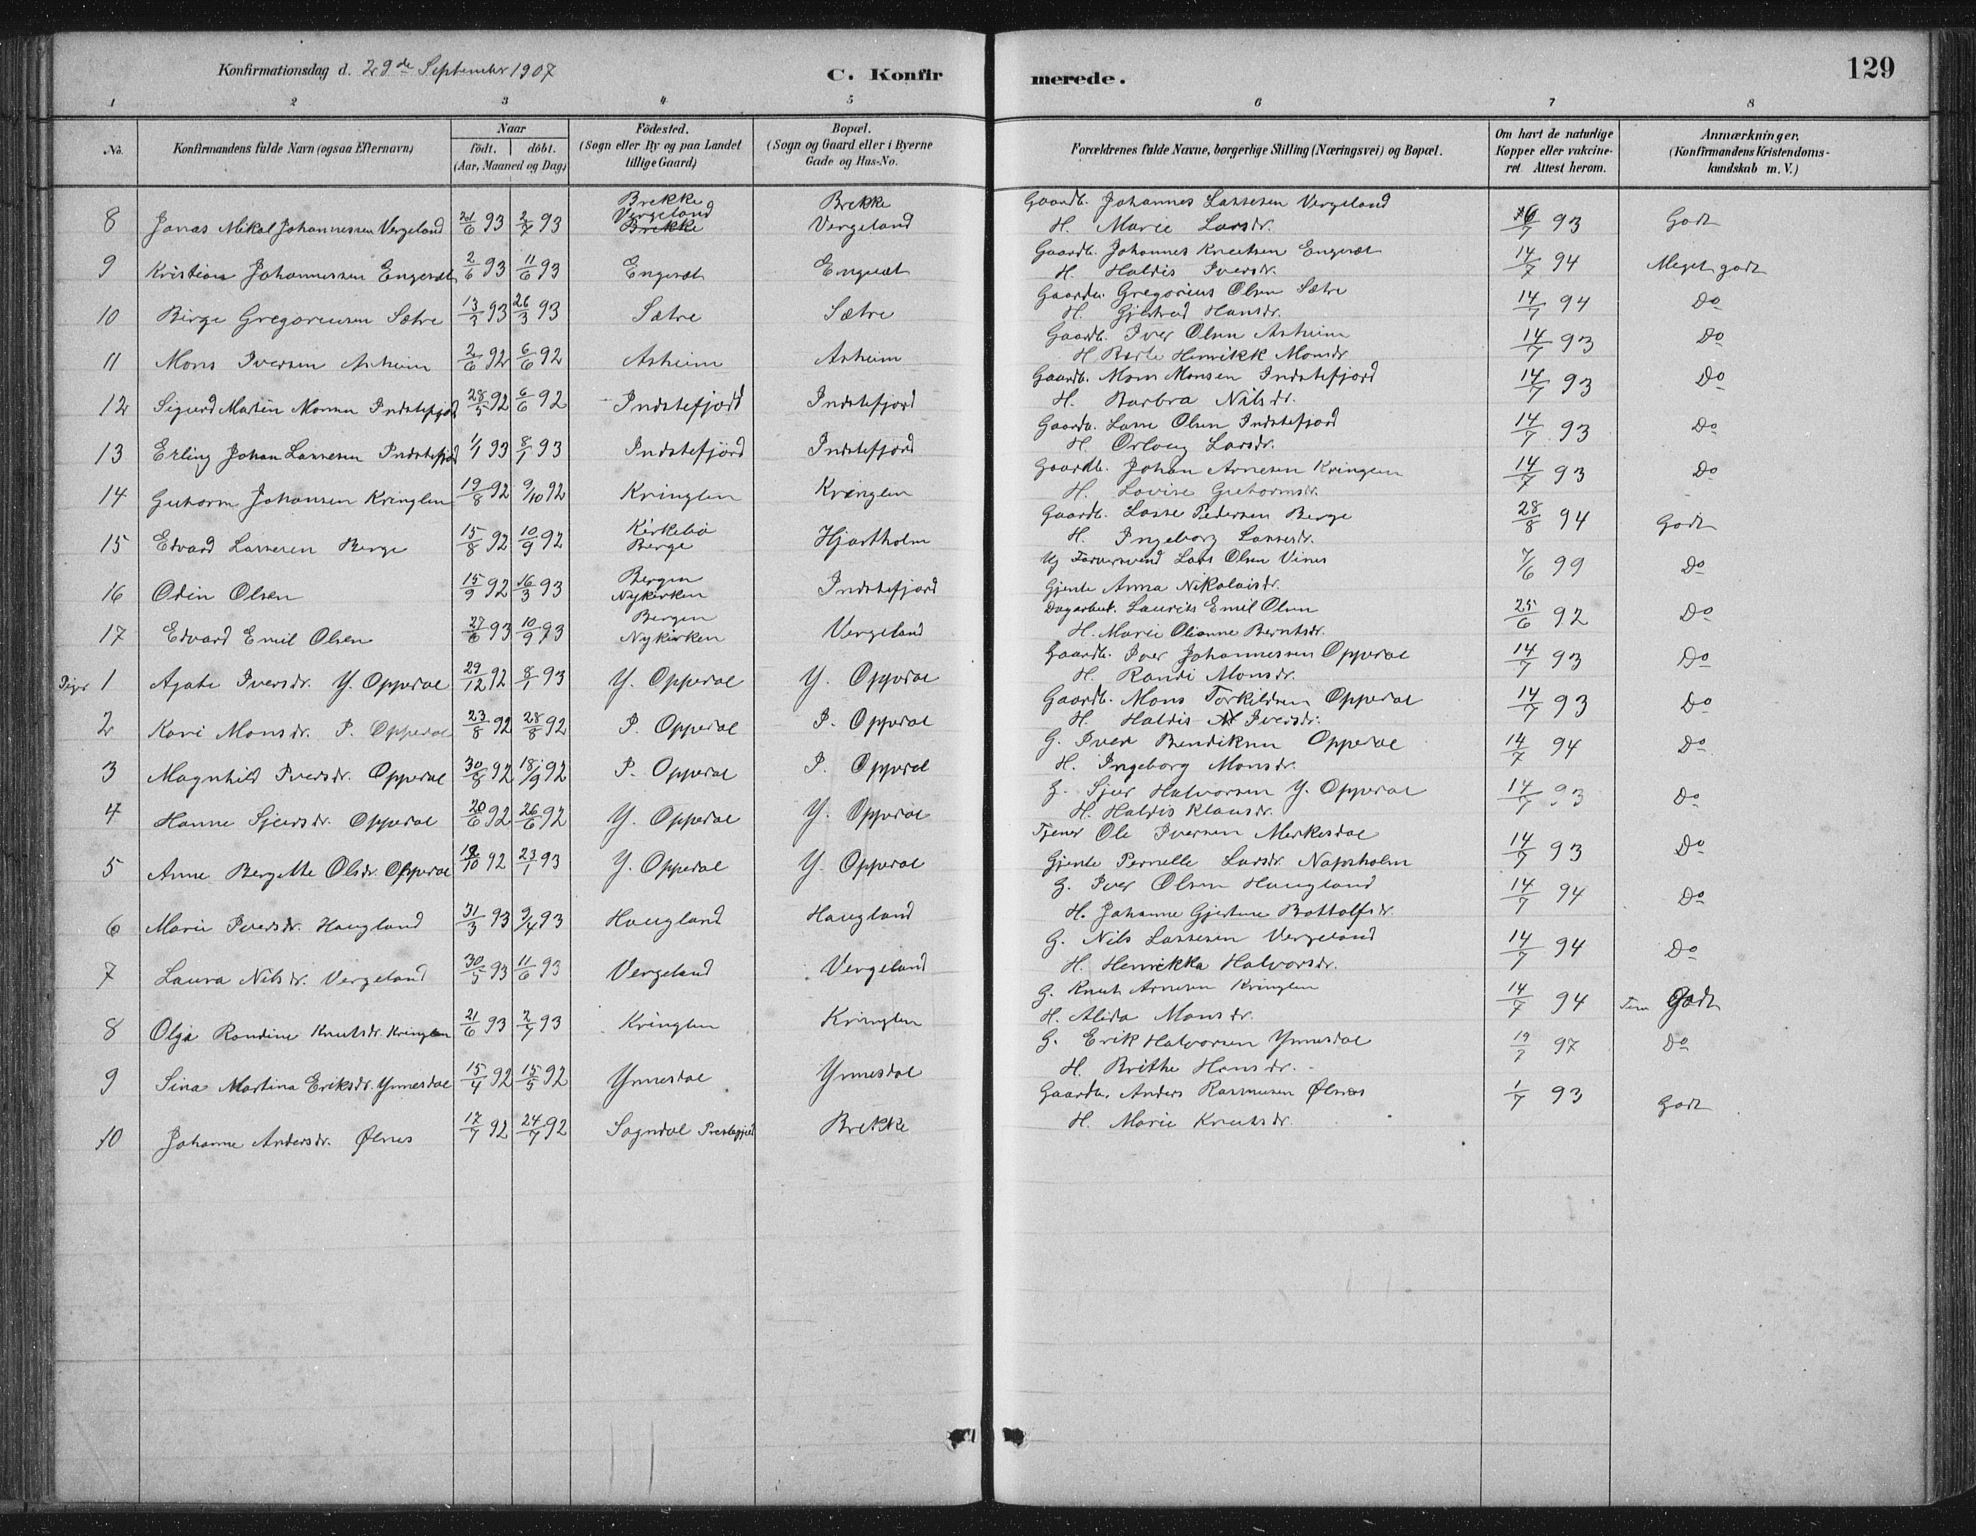 Konfirmationsdag d. 29de September 1907 C. Konfir merede. 129
1 2 3 4 5 6 7 8
No. Konfirmandens fulde Navn (ogsaa Efternavn) Naar födt. döbt. (Aar, Maaned og Dag) Födested. (Sogn eller By og paa Landet tillige Gaard) Bopæl. (Sogn og Gaard eller i Byerne Gade og Hus-No. Forældrenes fulde Navne, borgerlige Stilling (Næringsvei) og Bopæl. Om havt de naturlige Kopper eller vakcineret. Attest herom. Anmærkninger. (Konfirmandens Kristendomskundskab m. V.)
8 Jonas Mikal Johannessen Vergeland 21/6 93 2/7 93 Brekke Vergeland Brekke Brekke Vergeland Gaardb. Johannes Lassesen Vergeland
H. Marie Larsdr. 93 Godt
9 Kristian Johannessen Engesæt 2/6 93 11/6 93 Engesæt Engesæt Gaardb. Johannes Knutsen Engesæt
H. Haldis Iversdr. 14/7 94 Meget godt
10 Birge Gregoriusen Sætre 13/3 93 26/3 93 Sætre Sætre Gaardb. Gregorius Olsen Sætre
H. Gjertrud Hansdr. 14/7 94 Do
11 Mons Iversen Asheim 2/6 92 6/6 92 Asheim Asheim Gaardb. Iver Olsen Asheim
H. Henrikk Monsdr 14/7 93 Do
12 Sigurd Martin Monsen Indstefjord 28/5 92 6/6 92 Indstefjord Indstefjord Gaardb. Mons Monsen Indstefjord
H. Barbra Nilsdr. 14/7 93 Do
13 Erling Johan Lassesen Indstefjord 1/1 93 8/1 93 Indstefjord Indstefjord Gaardb. Lasse Olsen Indstefjord
H. Orloug Larsdr. 14/7 93 Do
14 Guttorm Johansen Kringlen 19/8 92 9/10 92 Kringlen Kringlen Gaardb. Johan Arnesen Kringlen
H. Lovise Guttormsdr. 14/7 93 Do
15 Edvard Lassesen Berge 15/8 92 10/9 92 Kirkebø Berge Hjartholm Gaardb. Lasse Pedersen Berge
H. Ingeborg Lassesdr. 28/8 94 Godt
16 Odin Olsen 15/9 92 16/3 93 Bergen Nykirken Indstefjord Ug Farversvend Lars Olsen Vines
Gjente Anna Nikolaisdr. 7/6 99 Do
17 Edvard Emil Olsen 27/6 93 10/9 93 Bergen Nykirken Vergeland Dagarbeid. Laurits Emil Olsen
H. Marie Olianne Berntsdr. 25/6 92 Do
Piger 1 Agate Iversdr. Y. Oppedal 29/12 92 8/1 93 Y. Oppedal Y. Oppedal Gaardb. Iver Johannessen Oppedal
H. Randi Monsdr. 14/7 93 Do
2 Kari Monsdr. I. Oppedal 23/8 92 28/8 92 I. Oppedal I. Oppedal Gaardb. Mons Torkildsen Oppedal
H. Haldis Iversdr. 14/7 93 Do
3 Magnhild Iversdr. Oppedal 30/8 92 18/9 92 I. Oppedal I. Oppedal G. Iver Bendiksen Oppedal
H. Ingeborg Monsdr. 14/7 94 Do
4 Hanne Sjursdr. Oppedal 20/6 92 26/6 92 Y. Oppedal Y. Oppedal G. Sjur Halvorsen Y. Oppedal
H. Haldis Klausdr. 14/7 93 Do
5 Anne Bergitte Olsdr. Oppedal 92 23/1 93 Y. Oppedal Y. Oppedal Tjener Ole Iversen Merkesdal
Gjente Pernelle Larsdr. Napsholm 14/7 93 Do
6 Marie Iversdr. Haugland 31/3 93 9/4 93 Haugland Haugland G. Iver Olsen Haugland
H. Johanne Gjertine Bottolfsdr. 14/7 94 Do
7 Laura Nilsdr. Vergeland 30/5 93 11/6 93 Vergeland Vergeland G. Nils Lassesen Vergeland
H. Henrikka Halvorsdr. 14/7 94 Do
8 Olga Randine Knutsdr. Kringlen 21/6 93 2/7 93 Kringlen Kringlen G. Knut Arnesen Kringlen
H. Alida Monsdr. 14/7 94 Godt
9 Sina Martina Eriksdr. Ynnesdal 15/4 92 15/5 92 Ynnesdal Ynnesdal G. Erik Halvorsen Ynnesdal
H. Brithe Hansdr. 19/7 97 Do
10 Johanne Andersdr. Ølnes 17/7 92 24/7 92 Sogndal Prestegjeld Brekke Gaardb. Anders Rasmusen Ølnes
H. Marie Knutsdr. 1/7 93 Godt